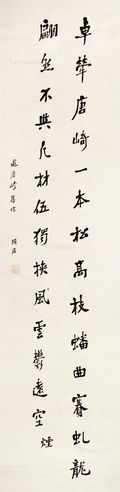 卓犖唐崎一本松高枝蟠曲奪虬龍
翩然不與凡材伍獨挾風雲鬱遠空煙
遊唐崎舊作